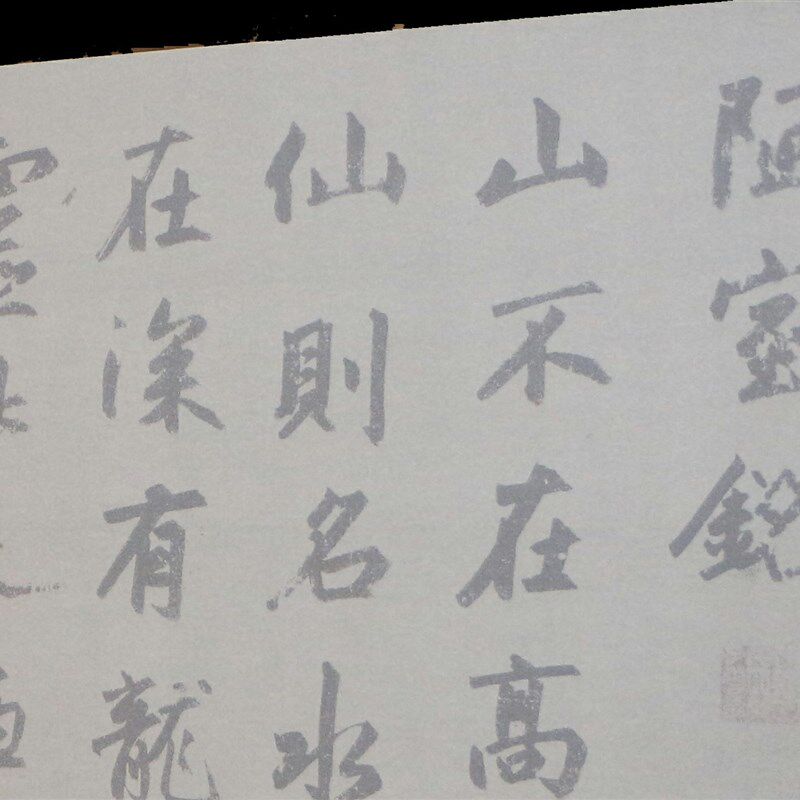 陋室銘
山不在高
仙則名水
在深有龍
靈